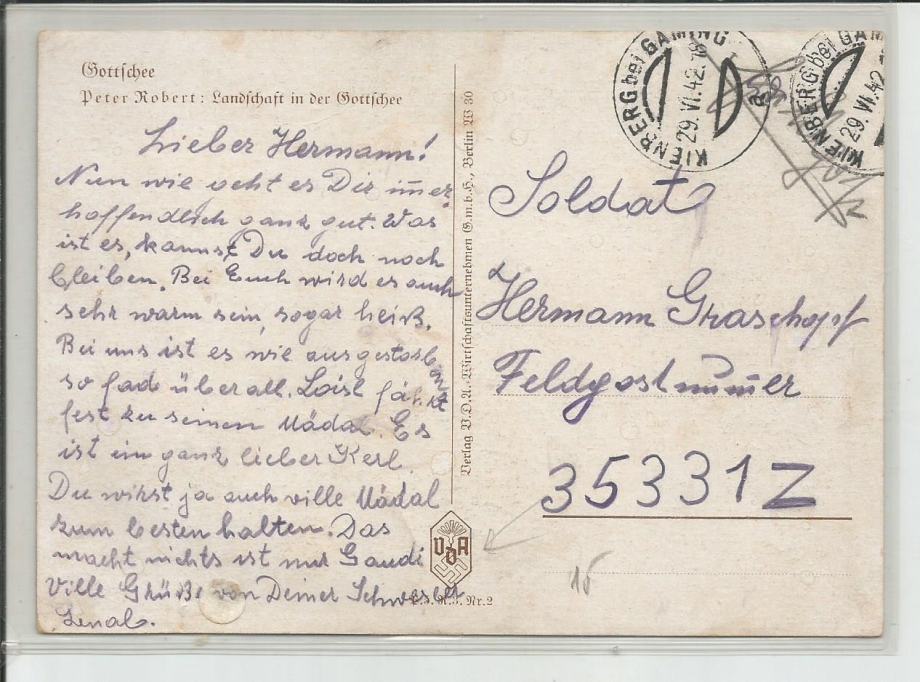 Gottschee
Peter Robert: Landschaft in der Gottschee
Lieber Hermann!
Nun wie geht es Dir immer
hoffendlich ganz gut. Was
ist es, kannst Du doch noch
bleiben. Bei Euch wird es auch
sehr warm sein, sogar heiß.
Bei uns ist es wie ausgestorben
so fad überall. Loisl fährt
fest zu seinen Mädal. Es
ist ein ganz lieber Kerl.
Du wirst ja auch ville Mädal
zum besten halten. Das
macht nichts ist nur Gaudi
Ville Grüße von Deiner Schwester
Verlag V.D.A.-Wirtschaftsunternehmen G.m.b.H., Berlin W 30
VDA
Nr. 2
KIENBERG bei GAMING
29.VI.42
a
KIENBERG bei GAM
29.VI.42
Soldat
Hermann Graschopf
Feldpostnummer
35331Z
15